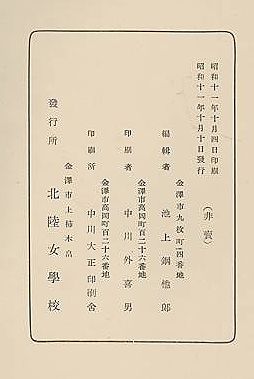 昭和十一年十月四日印刷
昭和十一年十月十日發行
(非賣)
金澤市九枚町二四番地
編輯者 池上鋼他郎
金澤市高岡町百二十六番地
印刷者 中川外喜男
金澤市高岡町百二十六番地
印刷所 中川大正印刷舍
金澤市上柿木畠
發行所 北陸女學校